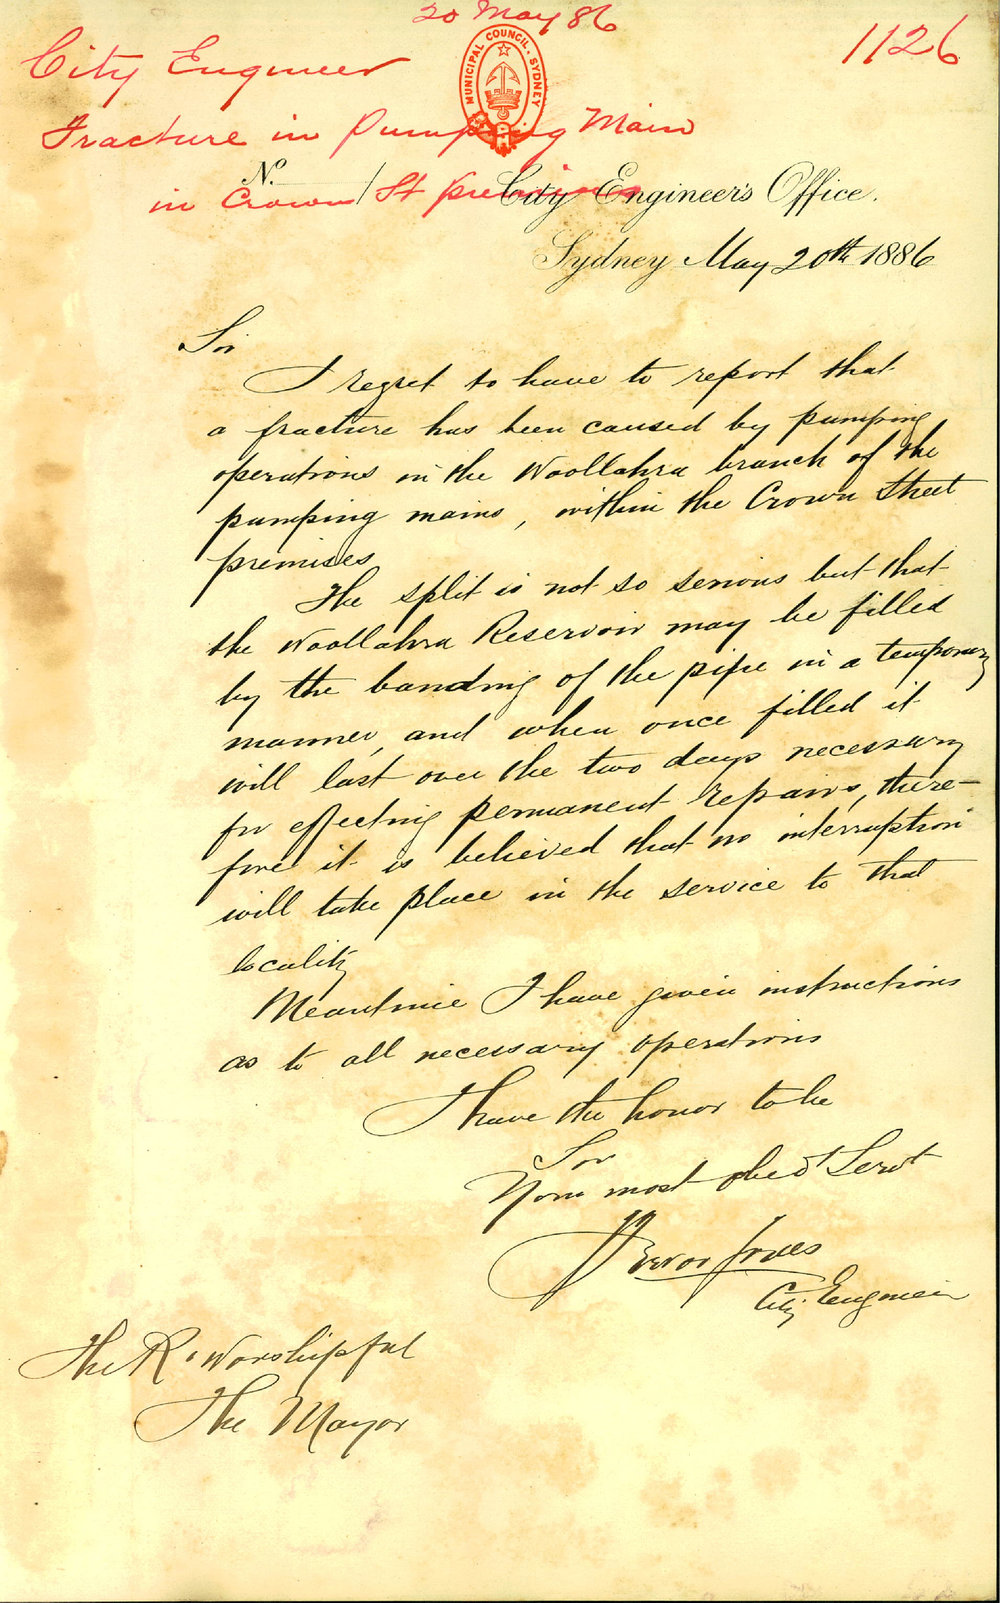 20 May 86
1126
City Engineer
MUNICIPAL COUNCIL. SYDNEY
Fracture in Pumping Main
in Crown St premises
No. /
City Engineer's Office.
Sydney May 20th 1886
Sir
I regret to have to report that
a fracture has been caused by pumping
operations in the Woollahra branch of the
pumping mains, within the Crown Street
premises
The split is not so serious but that
the Woollahra Reservoir may be filled
by the banding of the pipe in a temporary
manner, and when once filled it
will last over the two days necessary
for effecting permanent repairs, there-
fore it is believed that no interruption
will take place in the service to that
locality
Meantime I have given instructions
as to all necessary operations
I have the honor to be
Sir
Your most obedt Servt
Trevor Jones
City Engineer
The Rt Worshipful
The Mayor